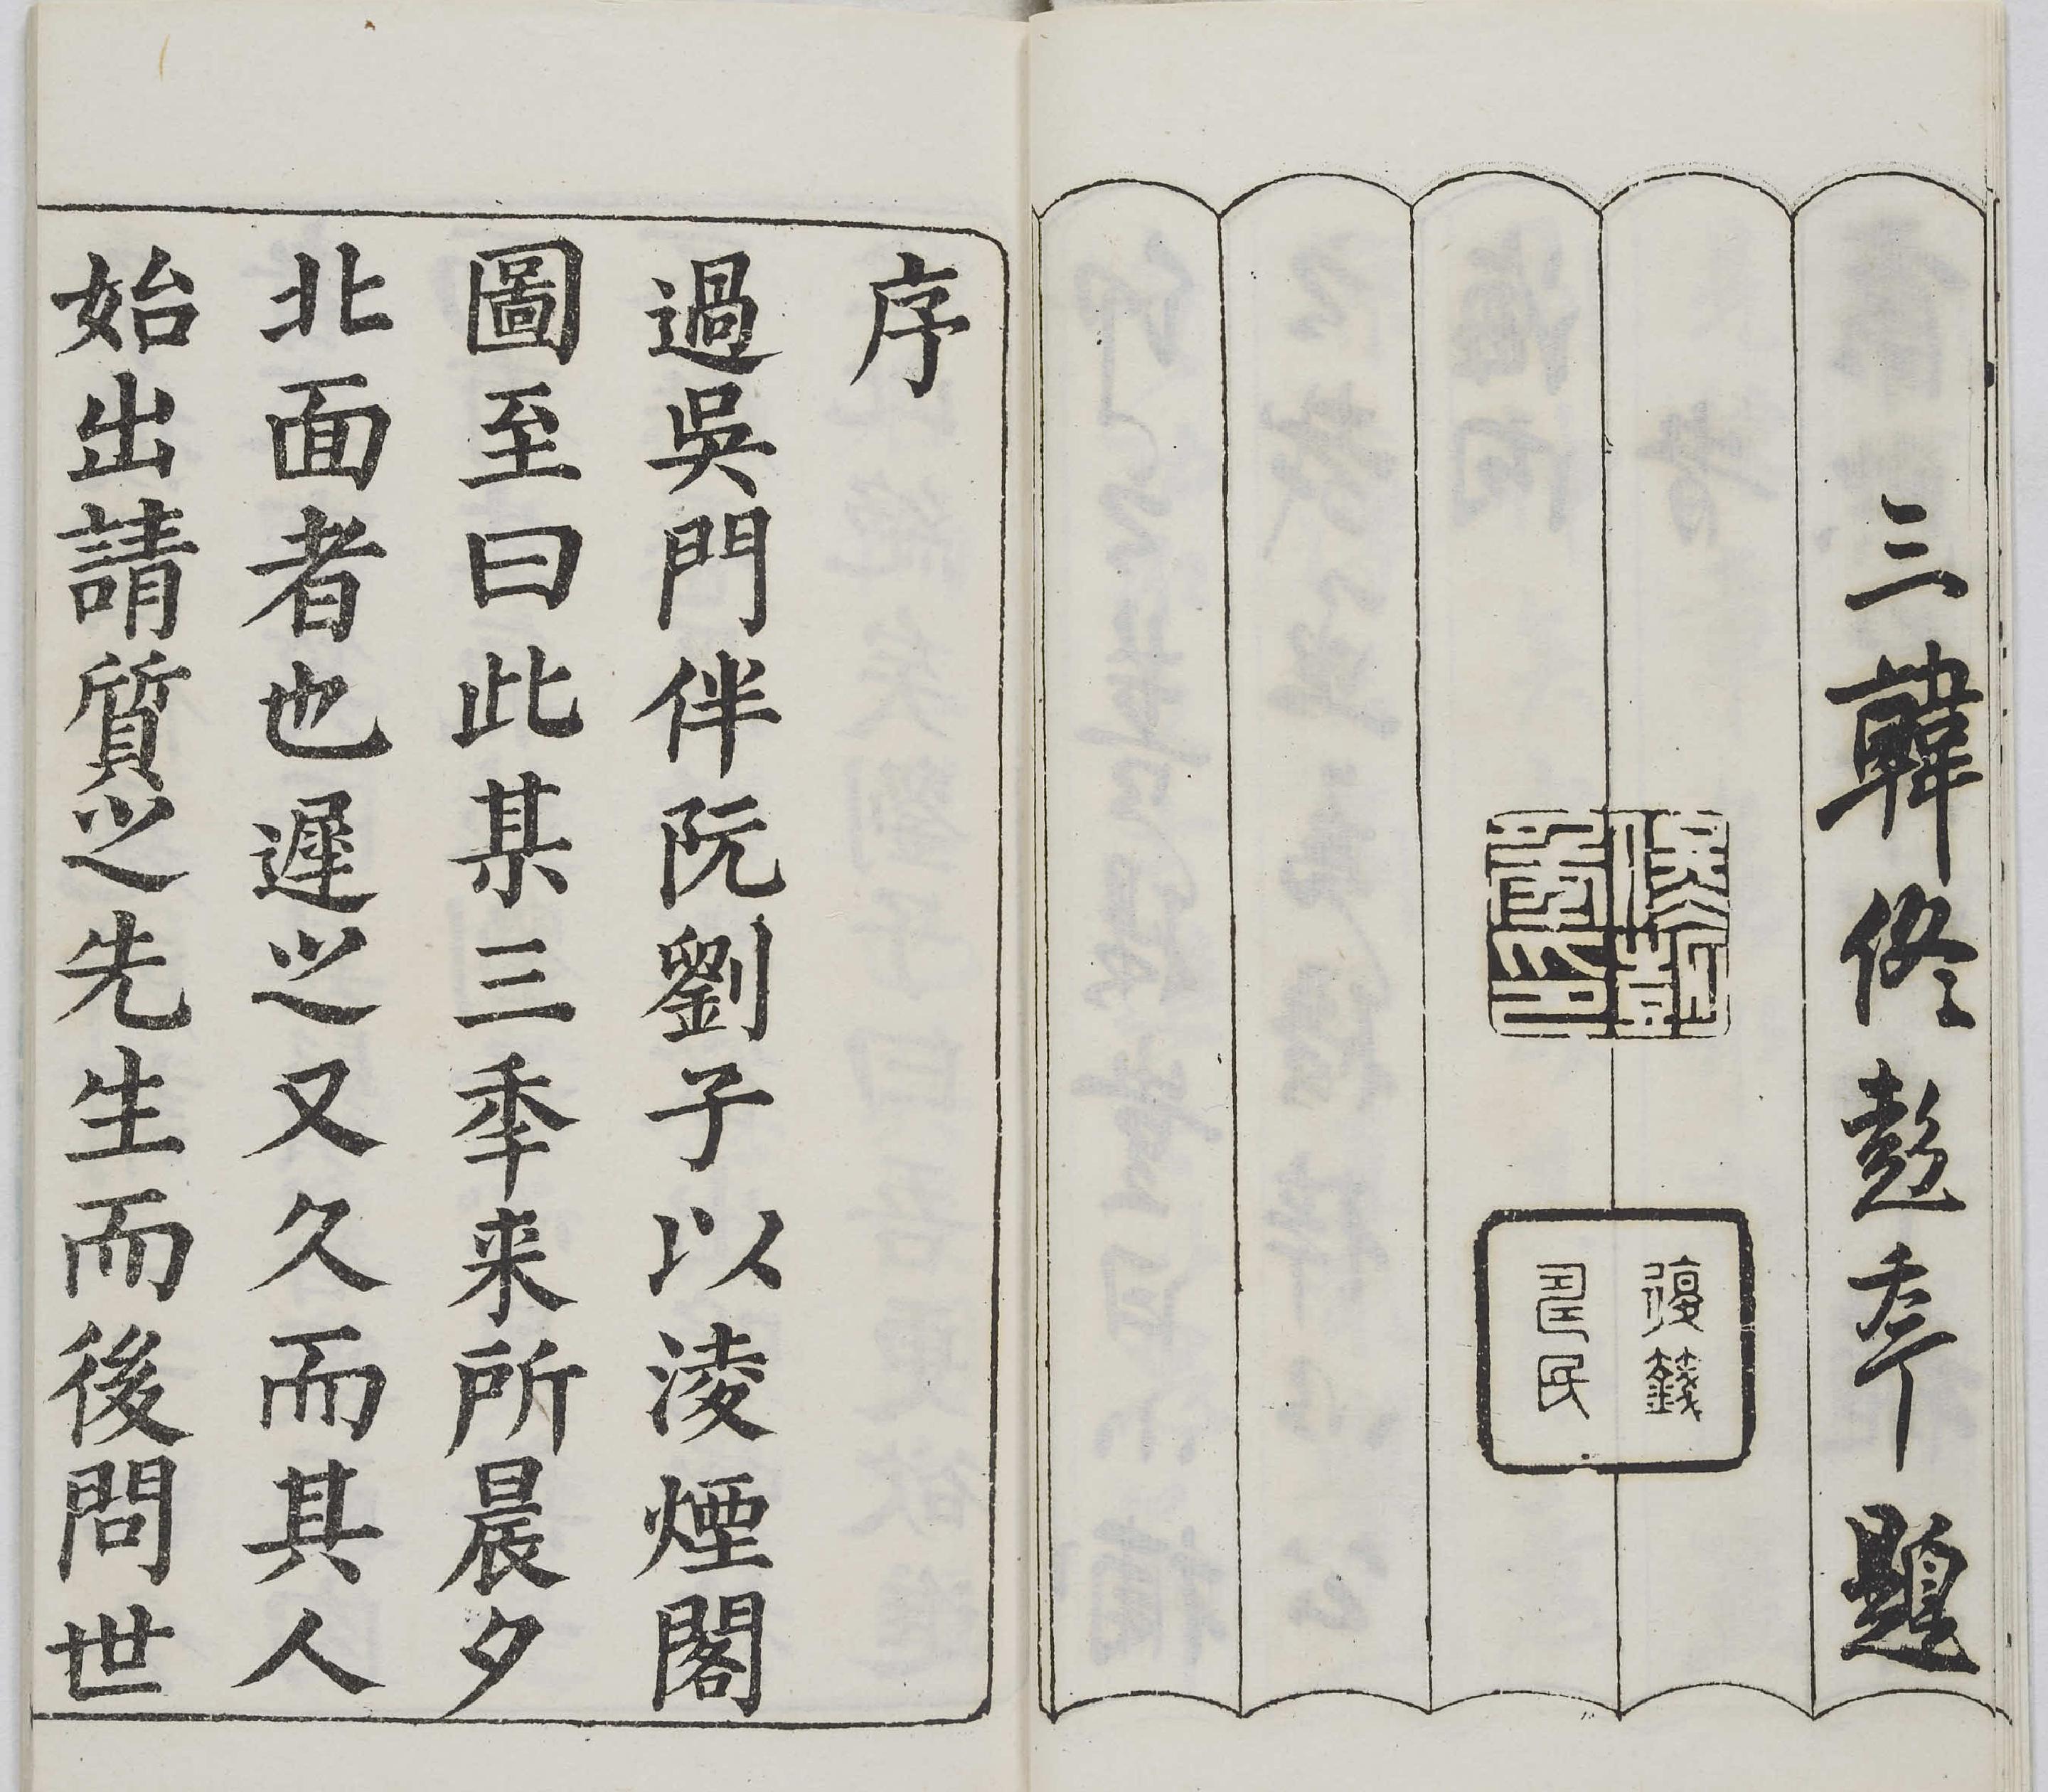 三韓佟彭年題
佟彭年印
序
過吳門伴阮劉子以淩煙閣
圖至曰此某三秊来所晨夕
北面者也遲之又久而其人
始出請質之先生而後問世